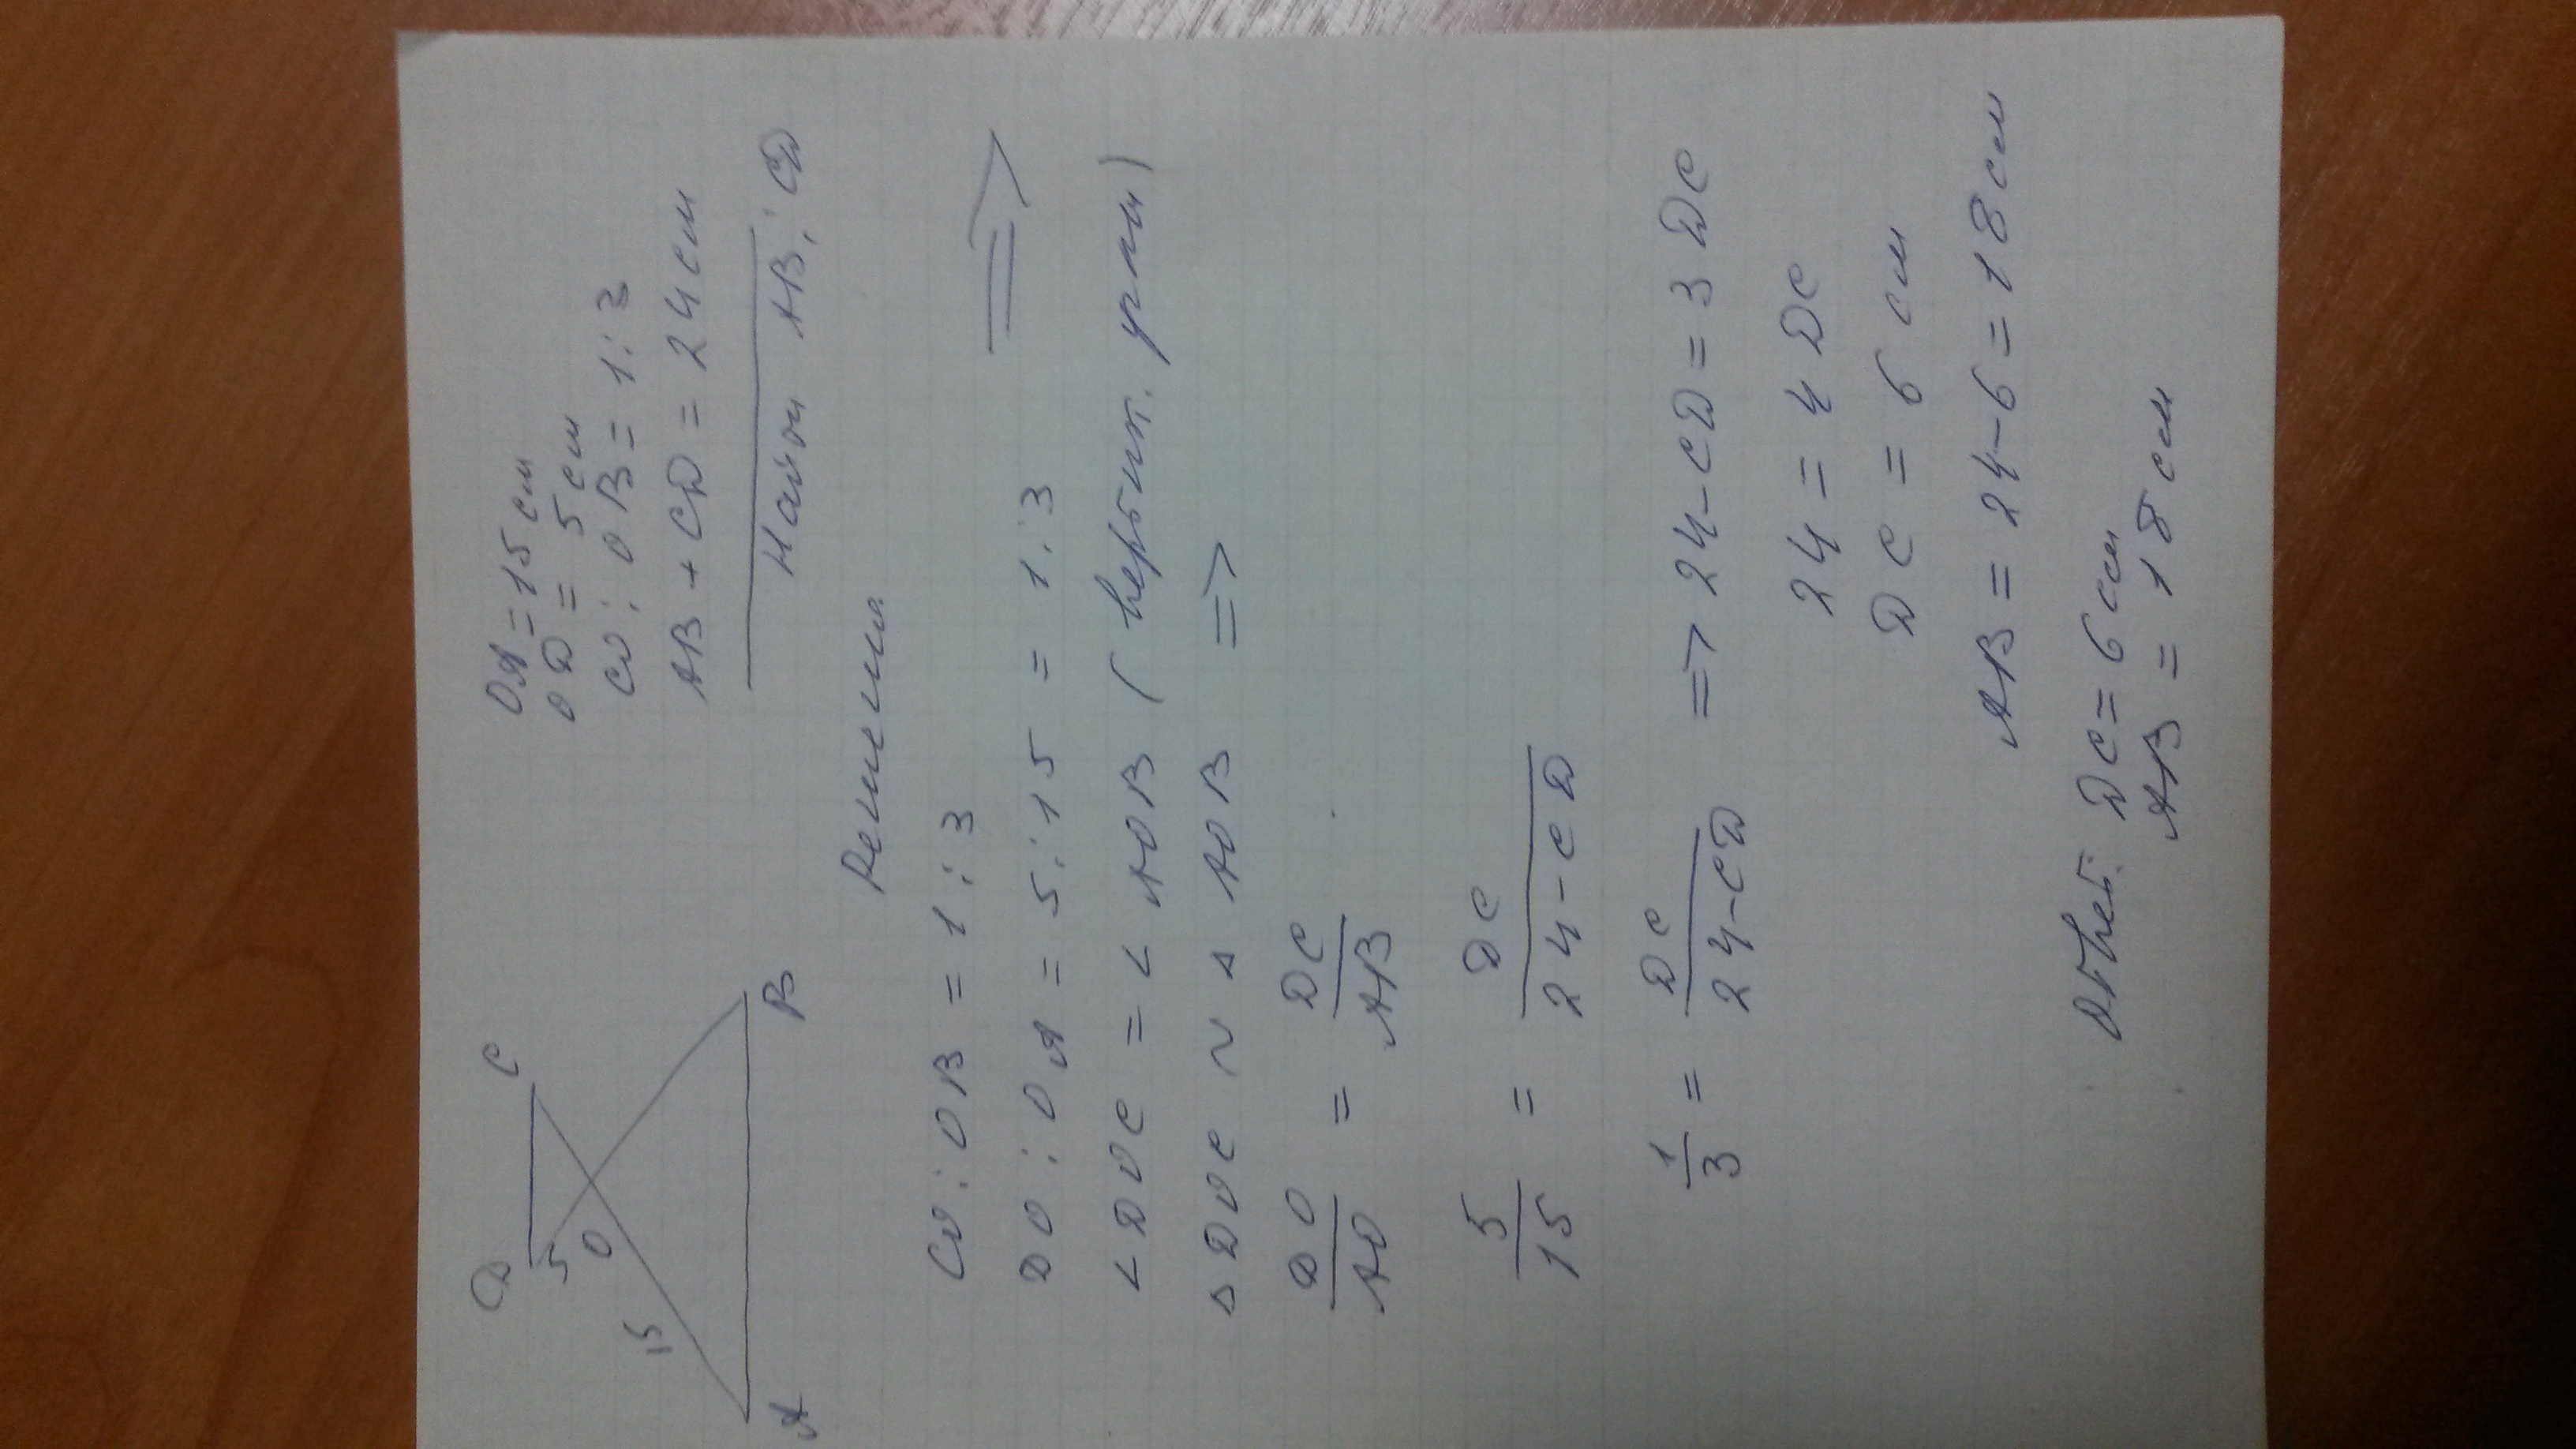 D C
5
O
15
A B
OA = 15 см
OD = 5 см
CO : OB = 1 : 3
AB + CD = 24 см
Найти AB ; CD
Решение
CO : OB = 1 : 3
DO : OA = 5 : 15 = 1 : 3 =>
∠DOC = ∠AOB ( вертик. углы )
△DOC ~ △AOB =>
DO/AO = DC/AB
5/15 = DC/24-CD
1/3 = DC/24-CD => 24-CD = 3DC
24 = 4 DC
DC = 6 см
AB = 24-6 = 18 см
Ответ: DC = 6 см
AB = 18 см